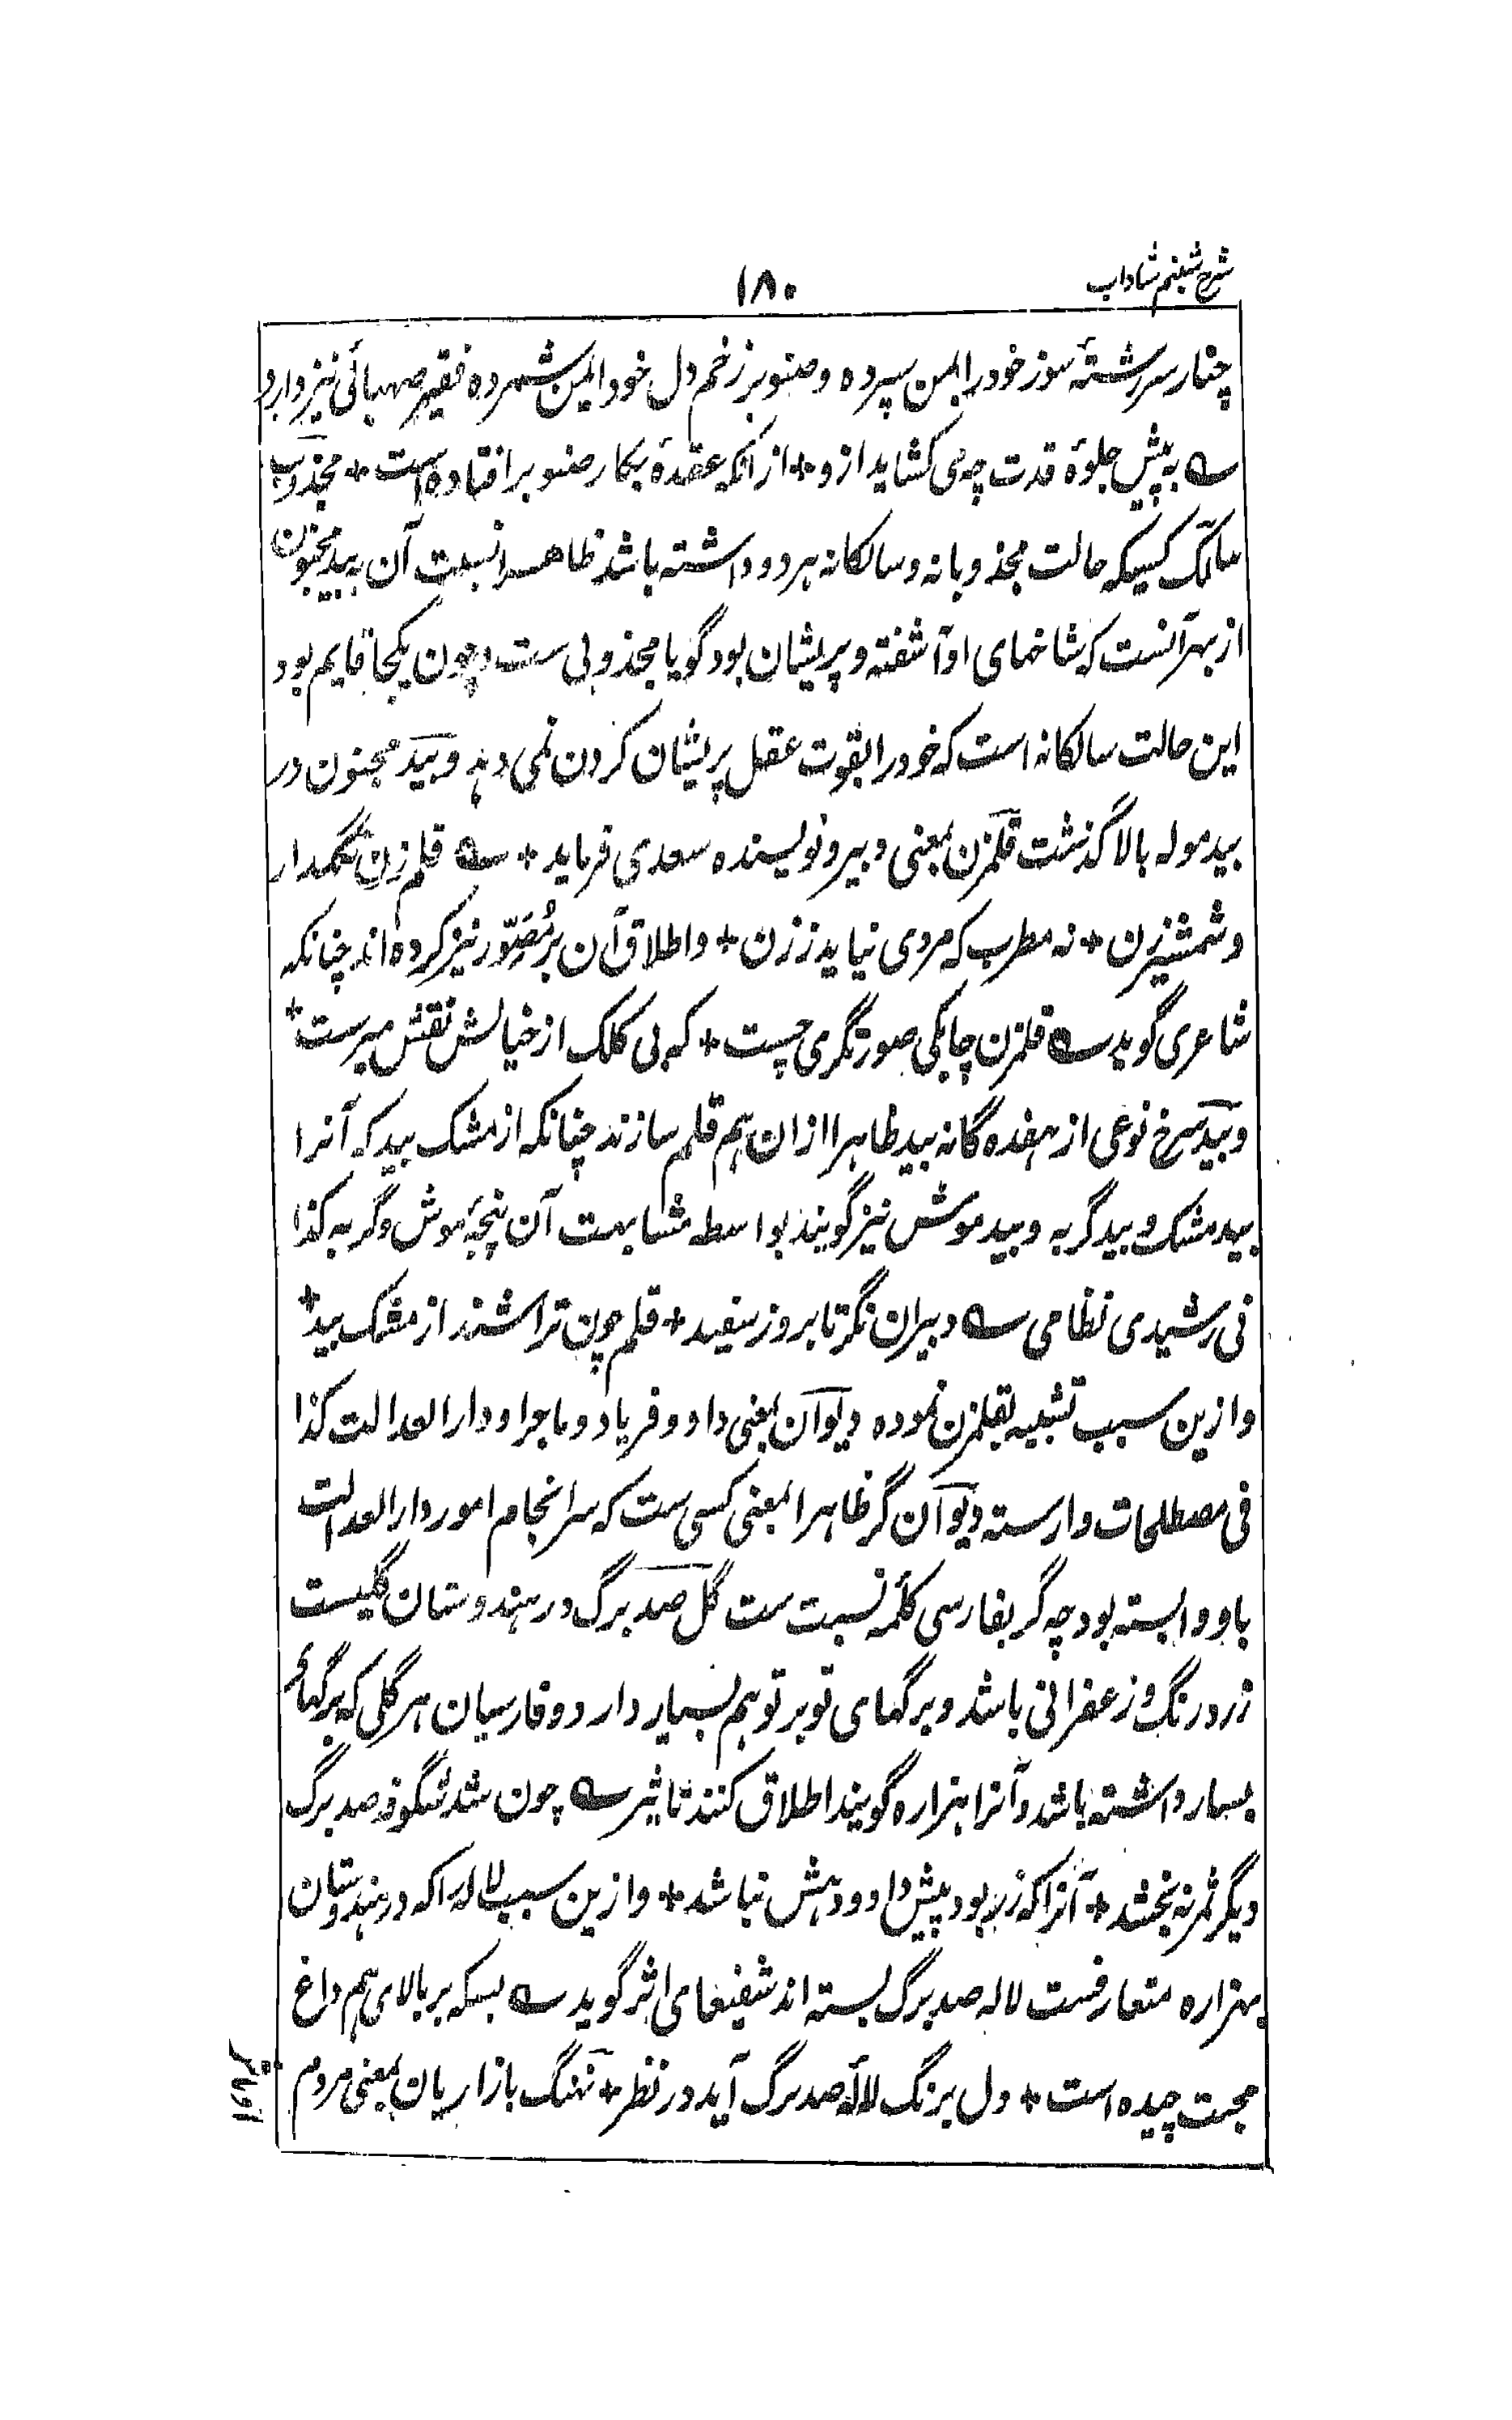 شرح شبنم شاداب
۱۸۰
چنار سررشتهٔ سوز خود را بمن سپرده و صنوبر زخم دل خود ایمن شمرده فقیر صهبائی نیز دارد
ــه به پیش جلوهٔ قدت چه می کشاید ازو + از انکه عقدهٔ بکار صنوبر افتاده است + مجذوب
سالک کسیکه حالت مجذوبانه و سالکانه هر دو داشته باشد ظاهرا نسبت آن به بید مجنون
از بهر آنست که شاخهای او آشفته و پریشان بود گویا مجذوبی ست و چون یکجا قایم بود
این حالت سالکانه است که خود را بقوت عقل پریشان کردن نمی دهد و بید مجنون در
بید موله بالا گذشت قلمزن بمعنی دبیر و نویسنده سعدی فرماید + ــه قلم زن نگهدار
و شمشیرزن + نه مطرب که مردی نیاید ز زن + و اطلاق آن بر مُصَوِّر نیز کرده اند چنانکه
شاعری گوید ــه قلمزن چابکی صورتگری چست + که بی کلک از خیالش نقش میرست +
و بید سرخ نوعی از هفده گانه بید ظاهرا ازان هم قلم سازند چنانکه از مشک بید که آنرا
بید مشک و بید گربه و بید موش نیز گویند بواسطه مشابهت آن پنجهٔ موش و گربه کذا
فی رشیدی نظامی ــه دبیران نگر تا بروز سفید + قلم چون تراشند از مشک بید +
و ازین سبب تشبیه بقلمزن نموده دیوان بمعنی داد و فریاد و ماجرا و دارالعدالت کذا
فی مصطلحات وارسته دیوان گر ظاهرا بمعنی کسی ست که سرانجام امور دارالعدالت
باو وابسته بود چه گر بفارسی کلمهٔ نسبت ست گل صد برگ در هندوستان گلیست
زرد رنگ و زعفرانی باشد و برگهای تو بر تو هم بسیار دارد و فارسیان هر گلی که برگهای
بسیار داشته باشد و آنرا هزاره گویند اطلاق کنند تاثیر ــه چون شد شگوفه صد برگ
دیگر ثمر نه بخشد + آنرا که زر بود پیش داد و دهش نباشد + و ازین سبب لاله را که در هندوستان
بهزاره متعارفست لاله صد برگ بسته اند شفیعای اثر گوید ــه بسکه بر بالای هم داغ
محبت چیده است + دل برنگ لالهٔ صد برگ آید در نظر + نهنگ بازاریان بمعنی مردم